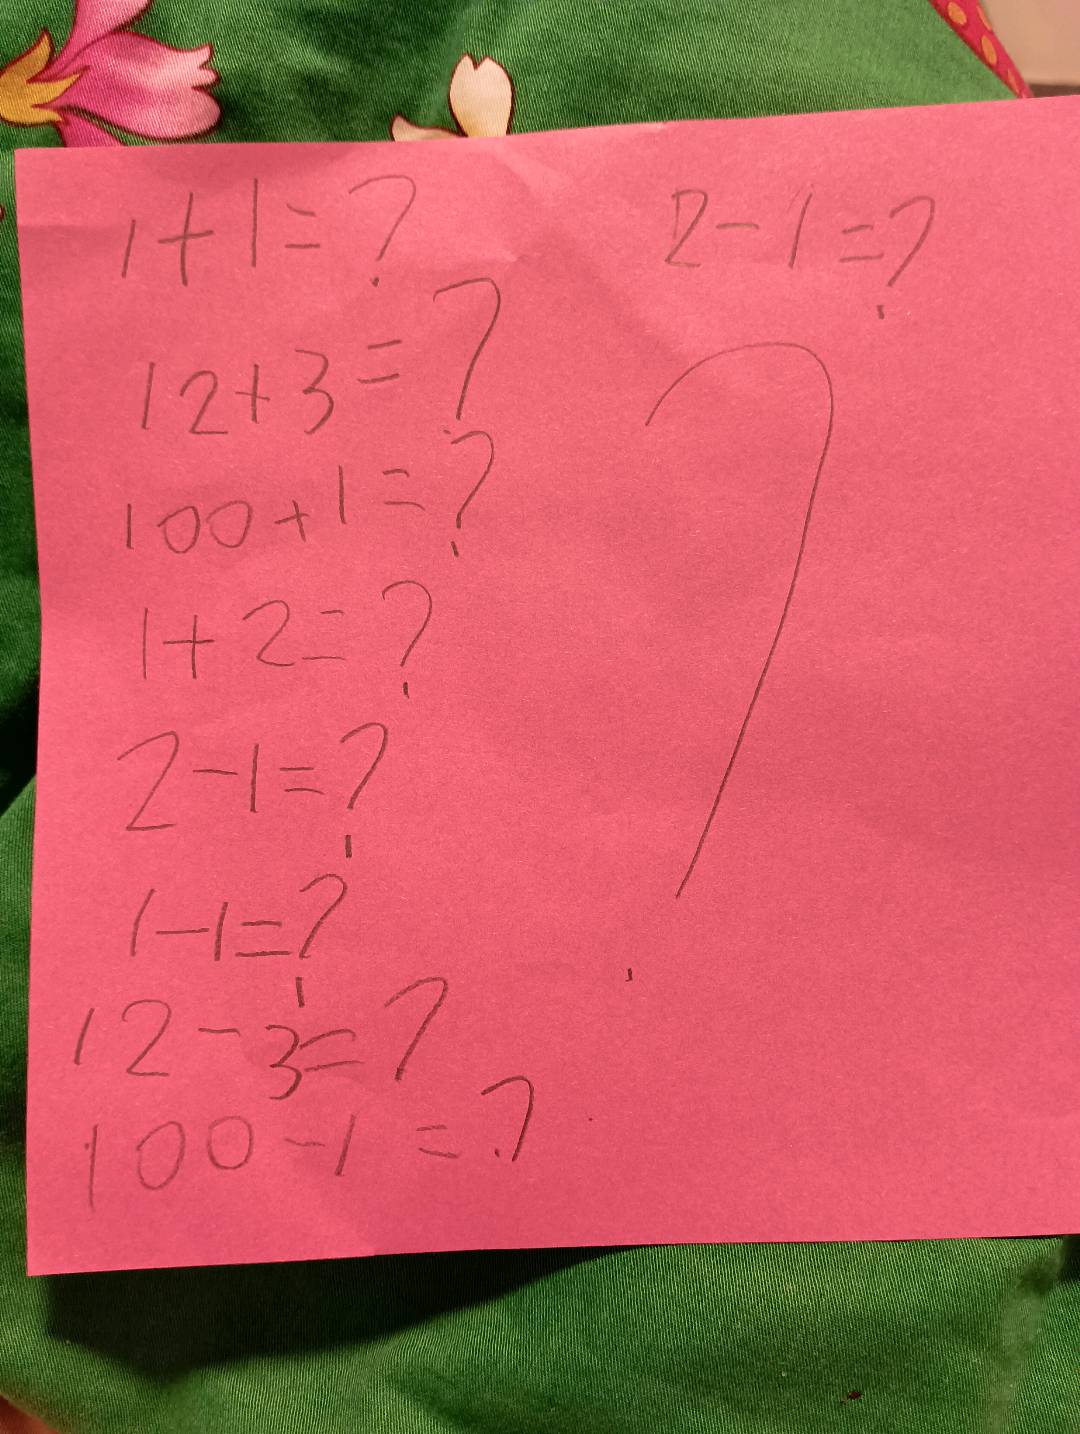 1+1=?
12+3=?
100+1=?
1+2=?
2-1=?
1-1=?
12-3=?
100-1=?
2-1=?
?